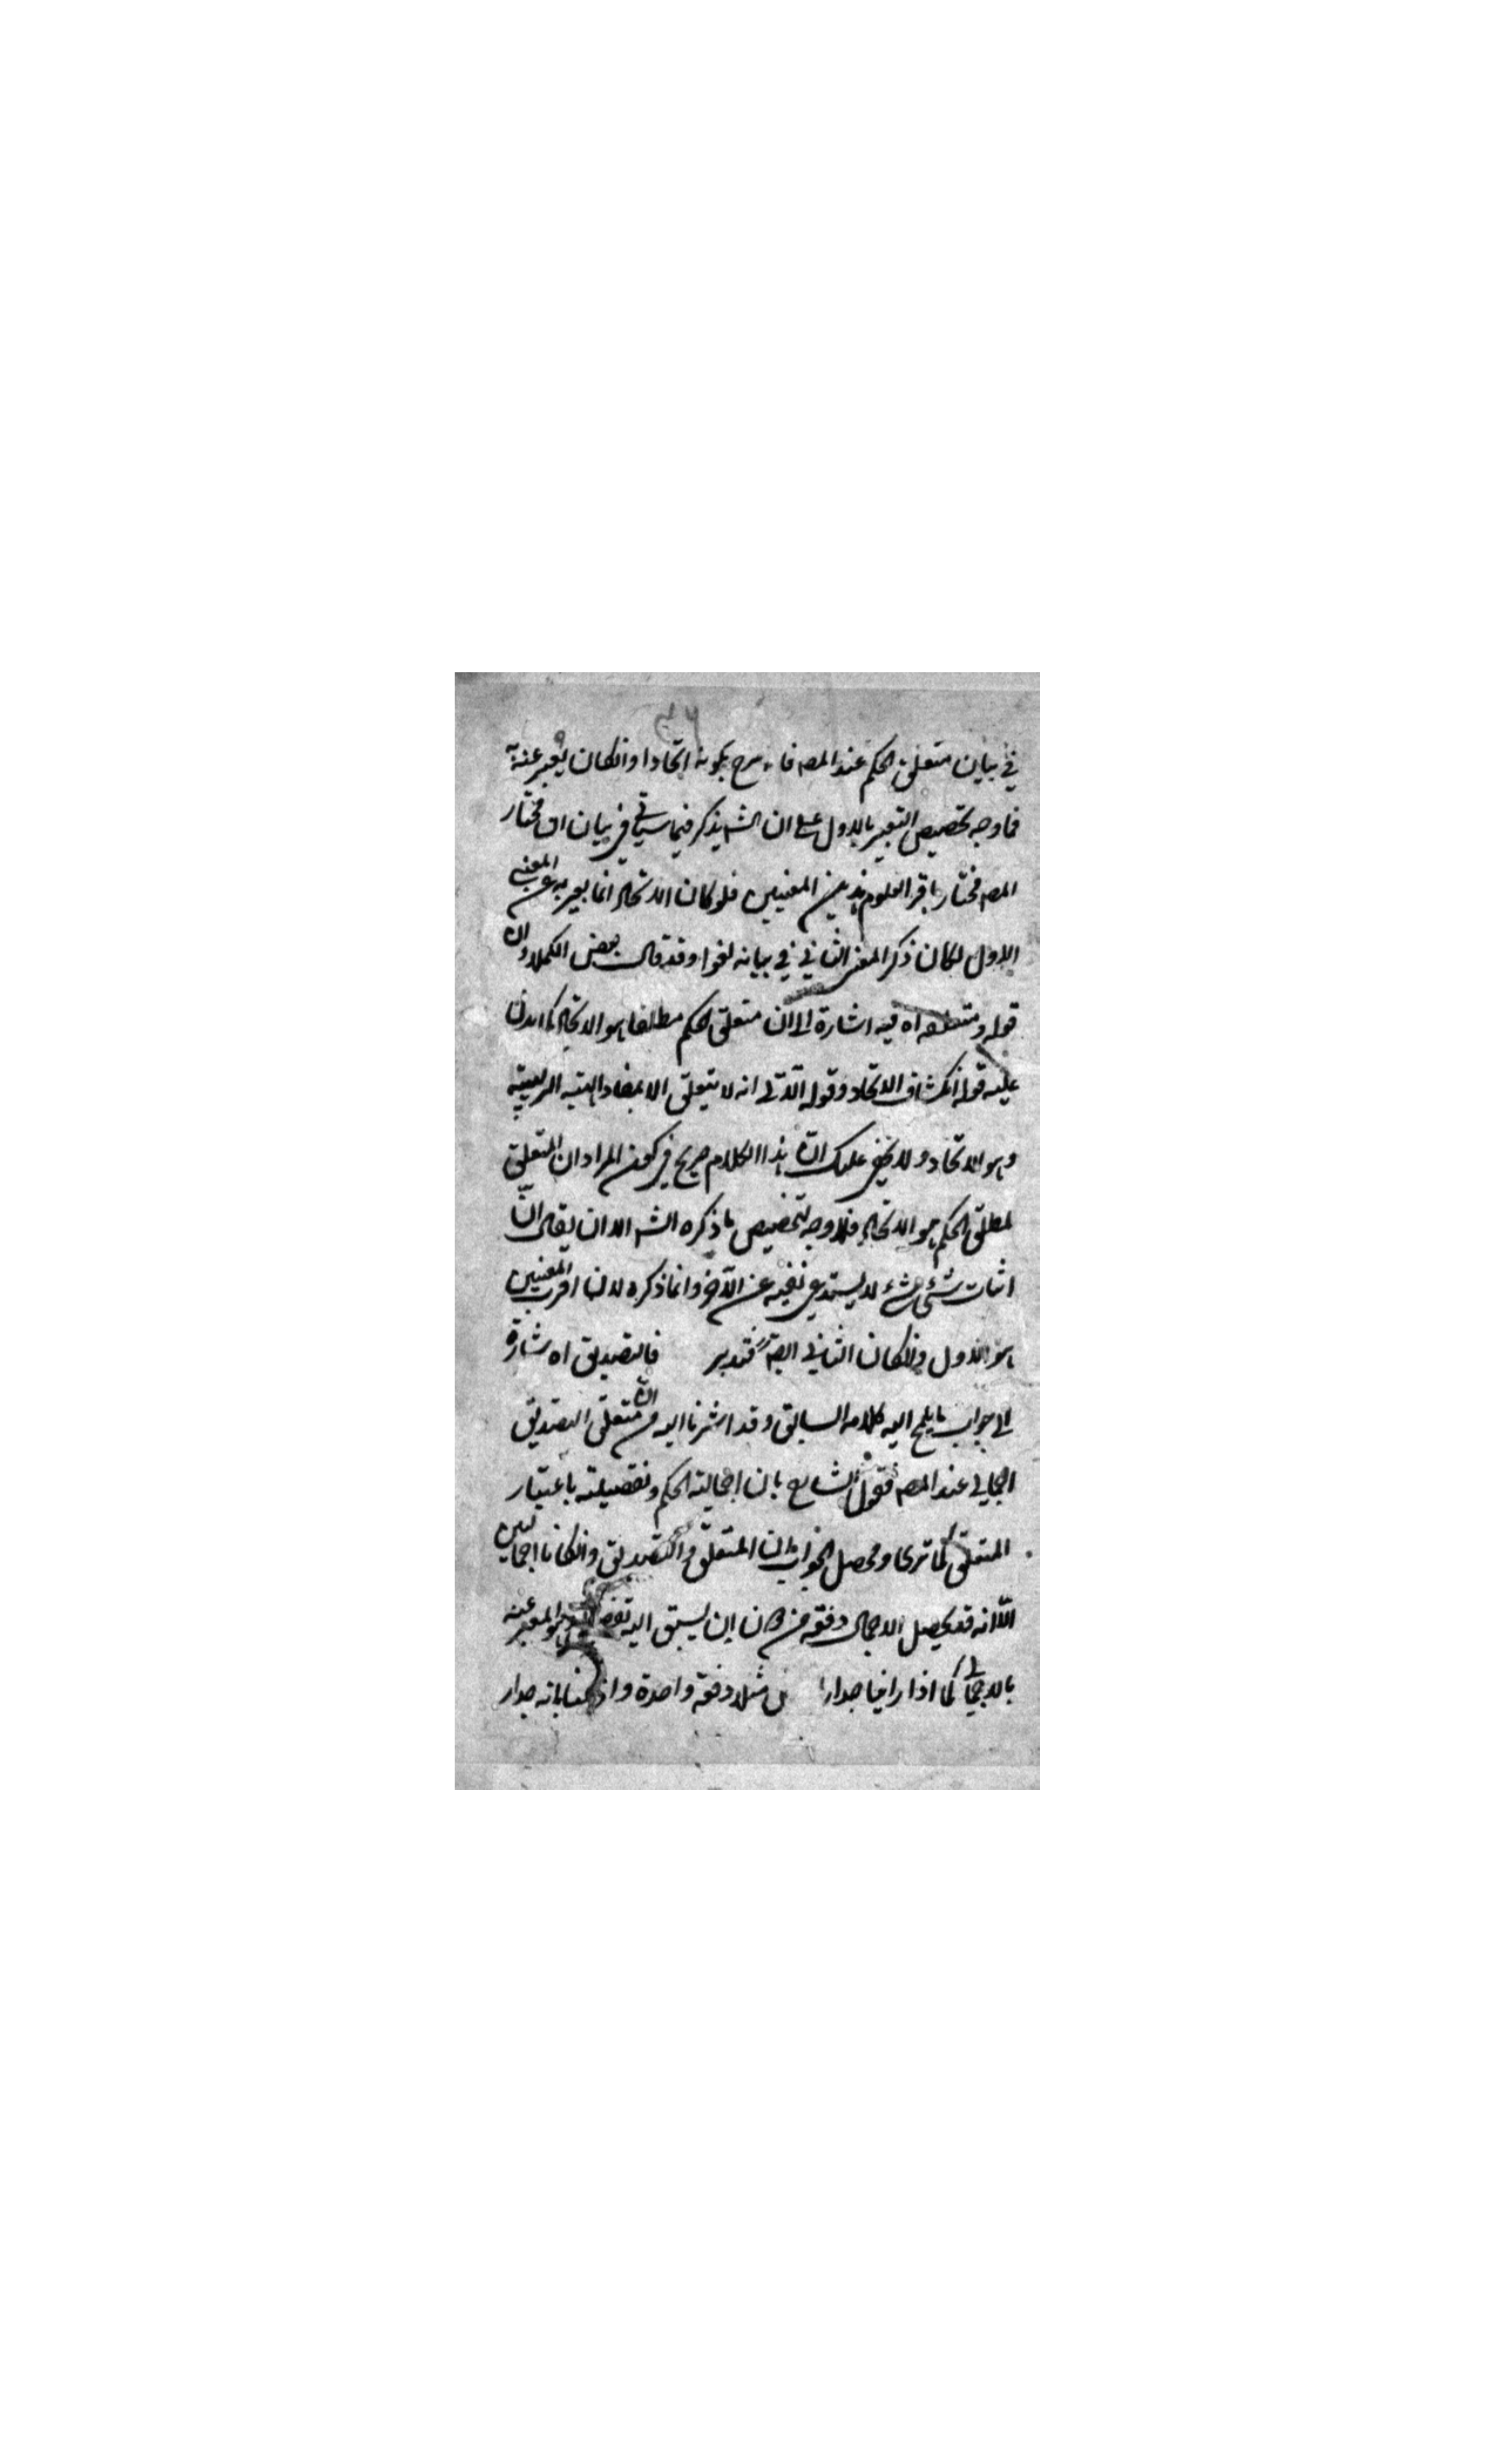 في بيان متعلق الحكم عند المصـ فانه صرح بكونه اتحادا وانكان يعبر عنه به
فما وجه تخصيص التعبير بالاول على ان الشـ يذكر فيما سياتي في بيان ان مختار
المصـ مختار باقر العلوم هذين المعنيين فلو كان الاتحاد انما يعبر به عن المعنى
الاول لكان ذكر المعنى الثاني في بيانه لغوا وقد قال بعض الكملاء ان
قوله ومتعلقه اه فيه اشارة الى ان متعلق الحكم مطلقا هو الاتحاد كما يدل
عليه قوله انكشاف الاتحاد وقوله الآتي انه لا يتعلق الا بمفاد الهيئة التركيبية
وهو الاتحاد ولا يخفى عليك ان هذا الكلام صريح في كون المراد ان المتعلق
لمطلق الحكم هو الاتحاد فلا وجه لتخصيص ما ذكره الشـ الا ان يقال ان
اثبات شئ لشئ لا يستدعي نفيه عن الآخر وانما ذكره لان اقرب المعنيين
هو الاول وانكان الثاني ايضـ فتدبر فالتصديق اه اشارة
الى جواب ما يلمح اليه كلامه السابق وقد اشرنا اليه من ان متعلق التصديق
اجمالي عند المصـ فقول الشايع بان اجمالية الحكم وتفصيلته باعتبار
المتعلق كما ترى ومحصل الجواب ان المتعلق والتصديق وانكانا اجماليين
الا انه قد يحصل الاجمال دفعة من دون ان يسبق اليه وهو المعبر عنه
بالاجمالي كما اذا راينا جدارا مثلا دفعة واحدة و بانه جدار